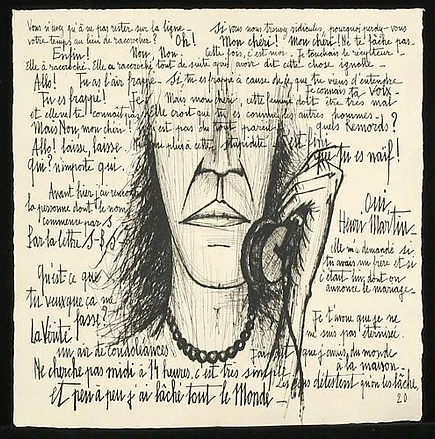 Vous n'avez qu'à ne pas rester sur la ligne. Si vous nous trouvez ridicules, pourquoi perdez-vous
votre temps au lieu de raccrocher? Oh! Mon chéri! Mon chéri! Ne te fâche pas.
Enfin! Non. Non. Cette fois, c'est moi. Je touchais le récepteur.
Elle a raccroché. Elle a raccroché tout de suite après avoir dit cette chose ignoble.
Allo! Tu as l'air frappé. Si, tu es frappé à cause de ce que tu viens d'entendre
Je connais ta voix.
Tu es frappé! Je Mais mon chéri, cette femme doit être très mal
et elle ne te connait pas. Elle croit que tu es comme les autres hommes.
Mais Non, mon chéri! n'est pas du tout pareil quels Remords?
Allo! laisse, laisse ne plus à cette stupidité est fini
que tu es naïf!
Qui? n'importe qui.
Avant hier j'ai rencontré
la personne dont le nom
commence par S
Par la lettre S-B.S
Oui,
Henri Martin
Elle m'a demandé si
tu avais un frère et si
c'était lui dont on
annonce le mariage
Qu'est-ce que
tu veux que ça me
fasse?
La Vérité
un air de condoléances
Je t'avoue que je ne
me suis pas éternisée.
J'ai dit que j'avais du monde
à la maison.
Ne cherche pas midi à 14 heures, c'est très simple. Les gens détestent qu'on les lâche,
et peu à peu j'ai lâché tout le Monde
20